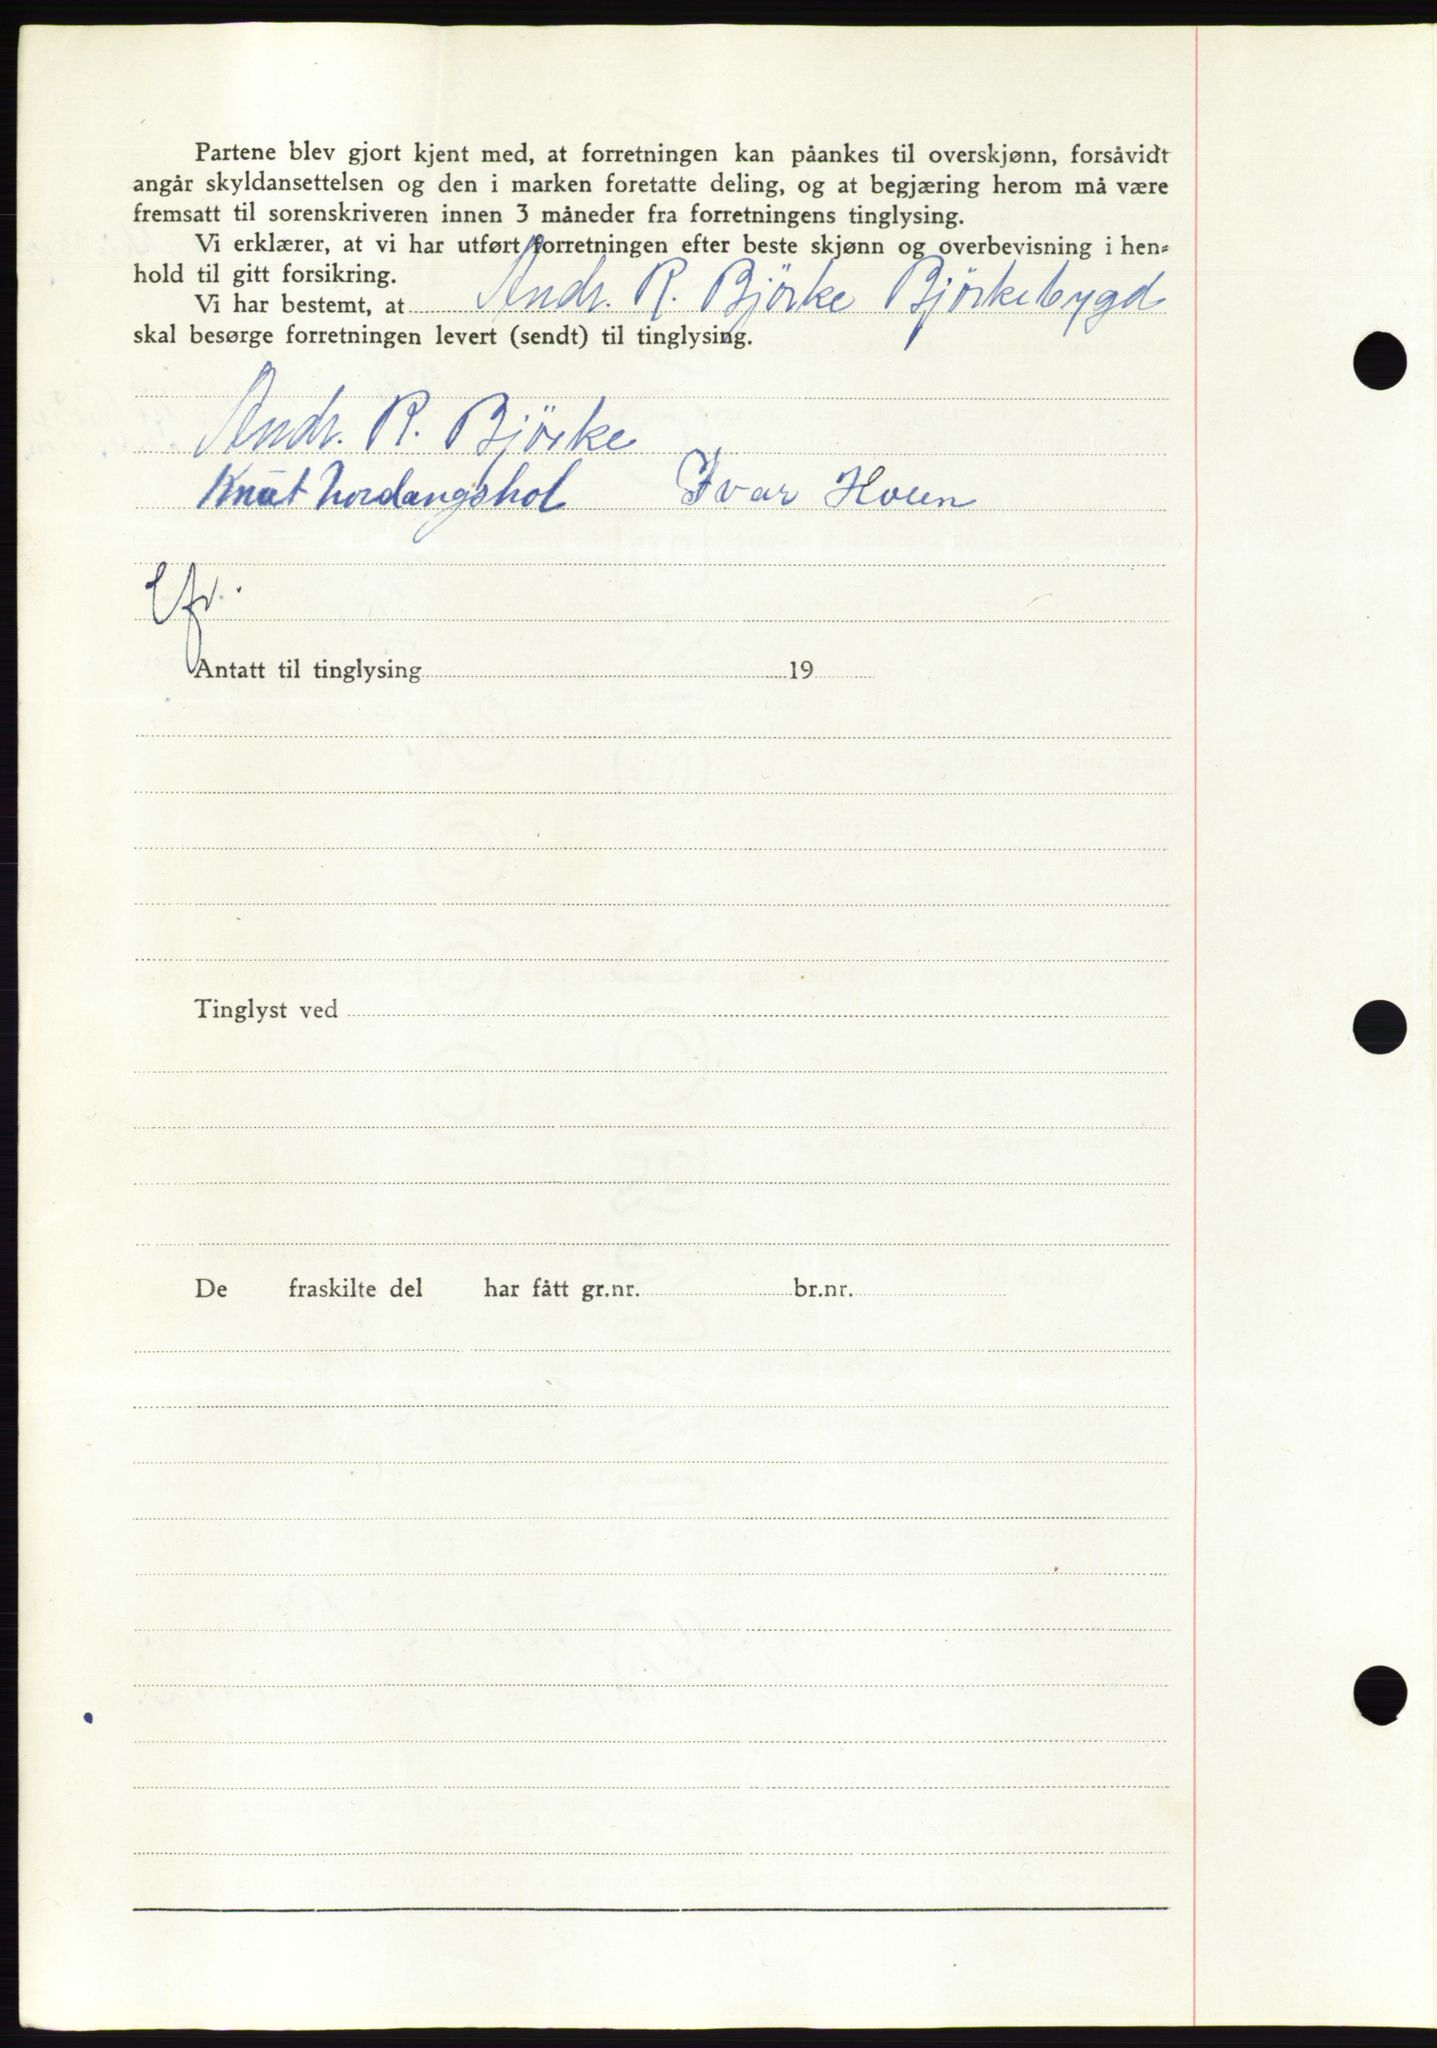 Partene blev gjort kjent med, at forretningen kan påankes til overskjønn, forsåvidt
angår skyldansettelsen og den i marken foretatte deling, og at begjæring herom må være
fremsatt til sorenskriveren innen 3 måneder fra forretningens tinglysing.
Vi erklærer, at vi har utført forretningen efter beste skjønn og overbevisning i hen=
hold til gitt forsikring.
Vi har bestemt, at Andr. R. Björke Björkebygd
skal besørge forretningen levert (sendt) til tinglysing.
Andr. R. Björke
Knut Nordangshol Ivar Hoen
Antatt til tinglysing 19
Tinglyst ved
De fraskilte del har fått gr.nr. br.nr.